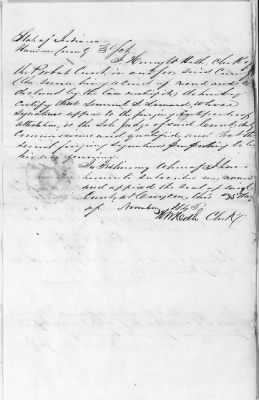 State of Indiana
Harrison County } Sct
I Henry W Heth Clerk of
the Probate Court in and for said County
(the same being a Court of record and so
declared by the law) certify, & do hereby
certify that Samuel Leonard whose
signature appears to the foregoing Certificate of
attestation, is the sole Judge of said Court, duly
Commissioned and qualified, and that the
said foregoing signature purporting to be
his is genuine
In Testimony whereof I have
hereunto subscribed my name
and affixed the Seal of said
County at Corydon, this 25 day
of November 1843
H W Heth Clerk